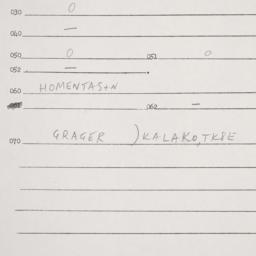 030 0
040 —
050 0 051 0
052 —
060 HOMENTASTN
062 —
070 GRAGER ) KALAKO, TKBE